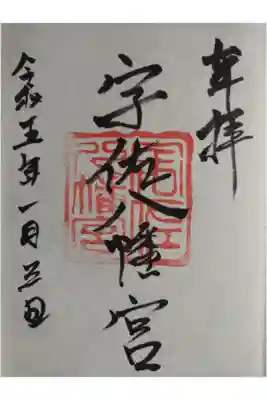 奉拝
宇佐八幡宮
令和五年一月日